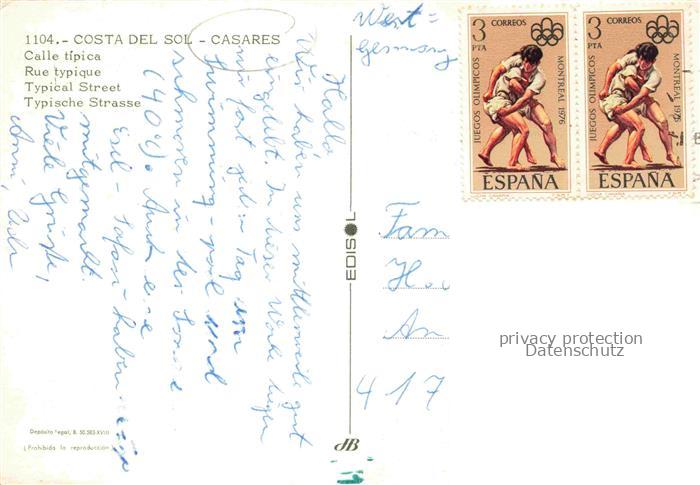 1104.- COSTA DEL SOL - CASARES
Calle típica
Rue typique
Typical Street
Typische Strasse
Hallo
Wir haben uns mittlerweile gut
eingelebt. In dieser Woche liegen
wir fast jeden Tag am
swimming-pool und
schmoren in der Sonne
(40°C). Auch eine
Esel-Safari haben wir
mitgemacht.
Viele Grüße,
Anni,
Depósito legal, B. 50.583-XVIII
(Prohibida la reproducción)
EDISOL
JB
West=
Germany
3
PTA
CORREOS
JUEGOS OLIMPICOS
MONTREAL 1976
ESPAÑA
3
PTA
CORREOS
JUEGOS OLIMPICOS
MONTREAL 1976
ESPAÑA
Fam
An
417
privacy protection
Datenschutz